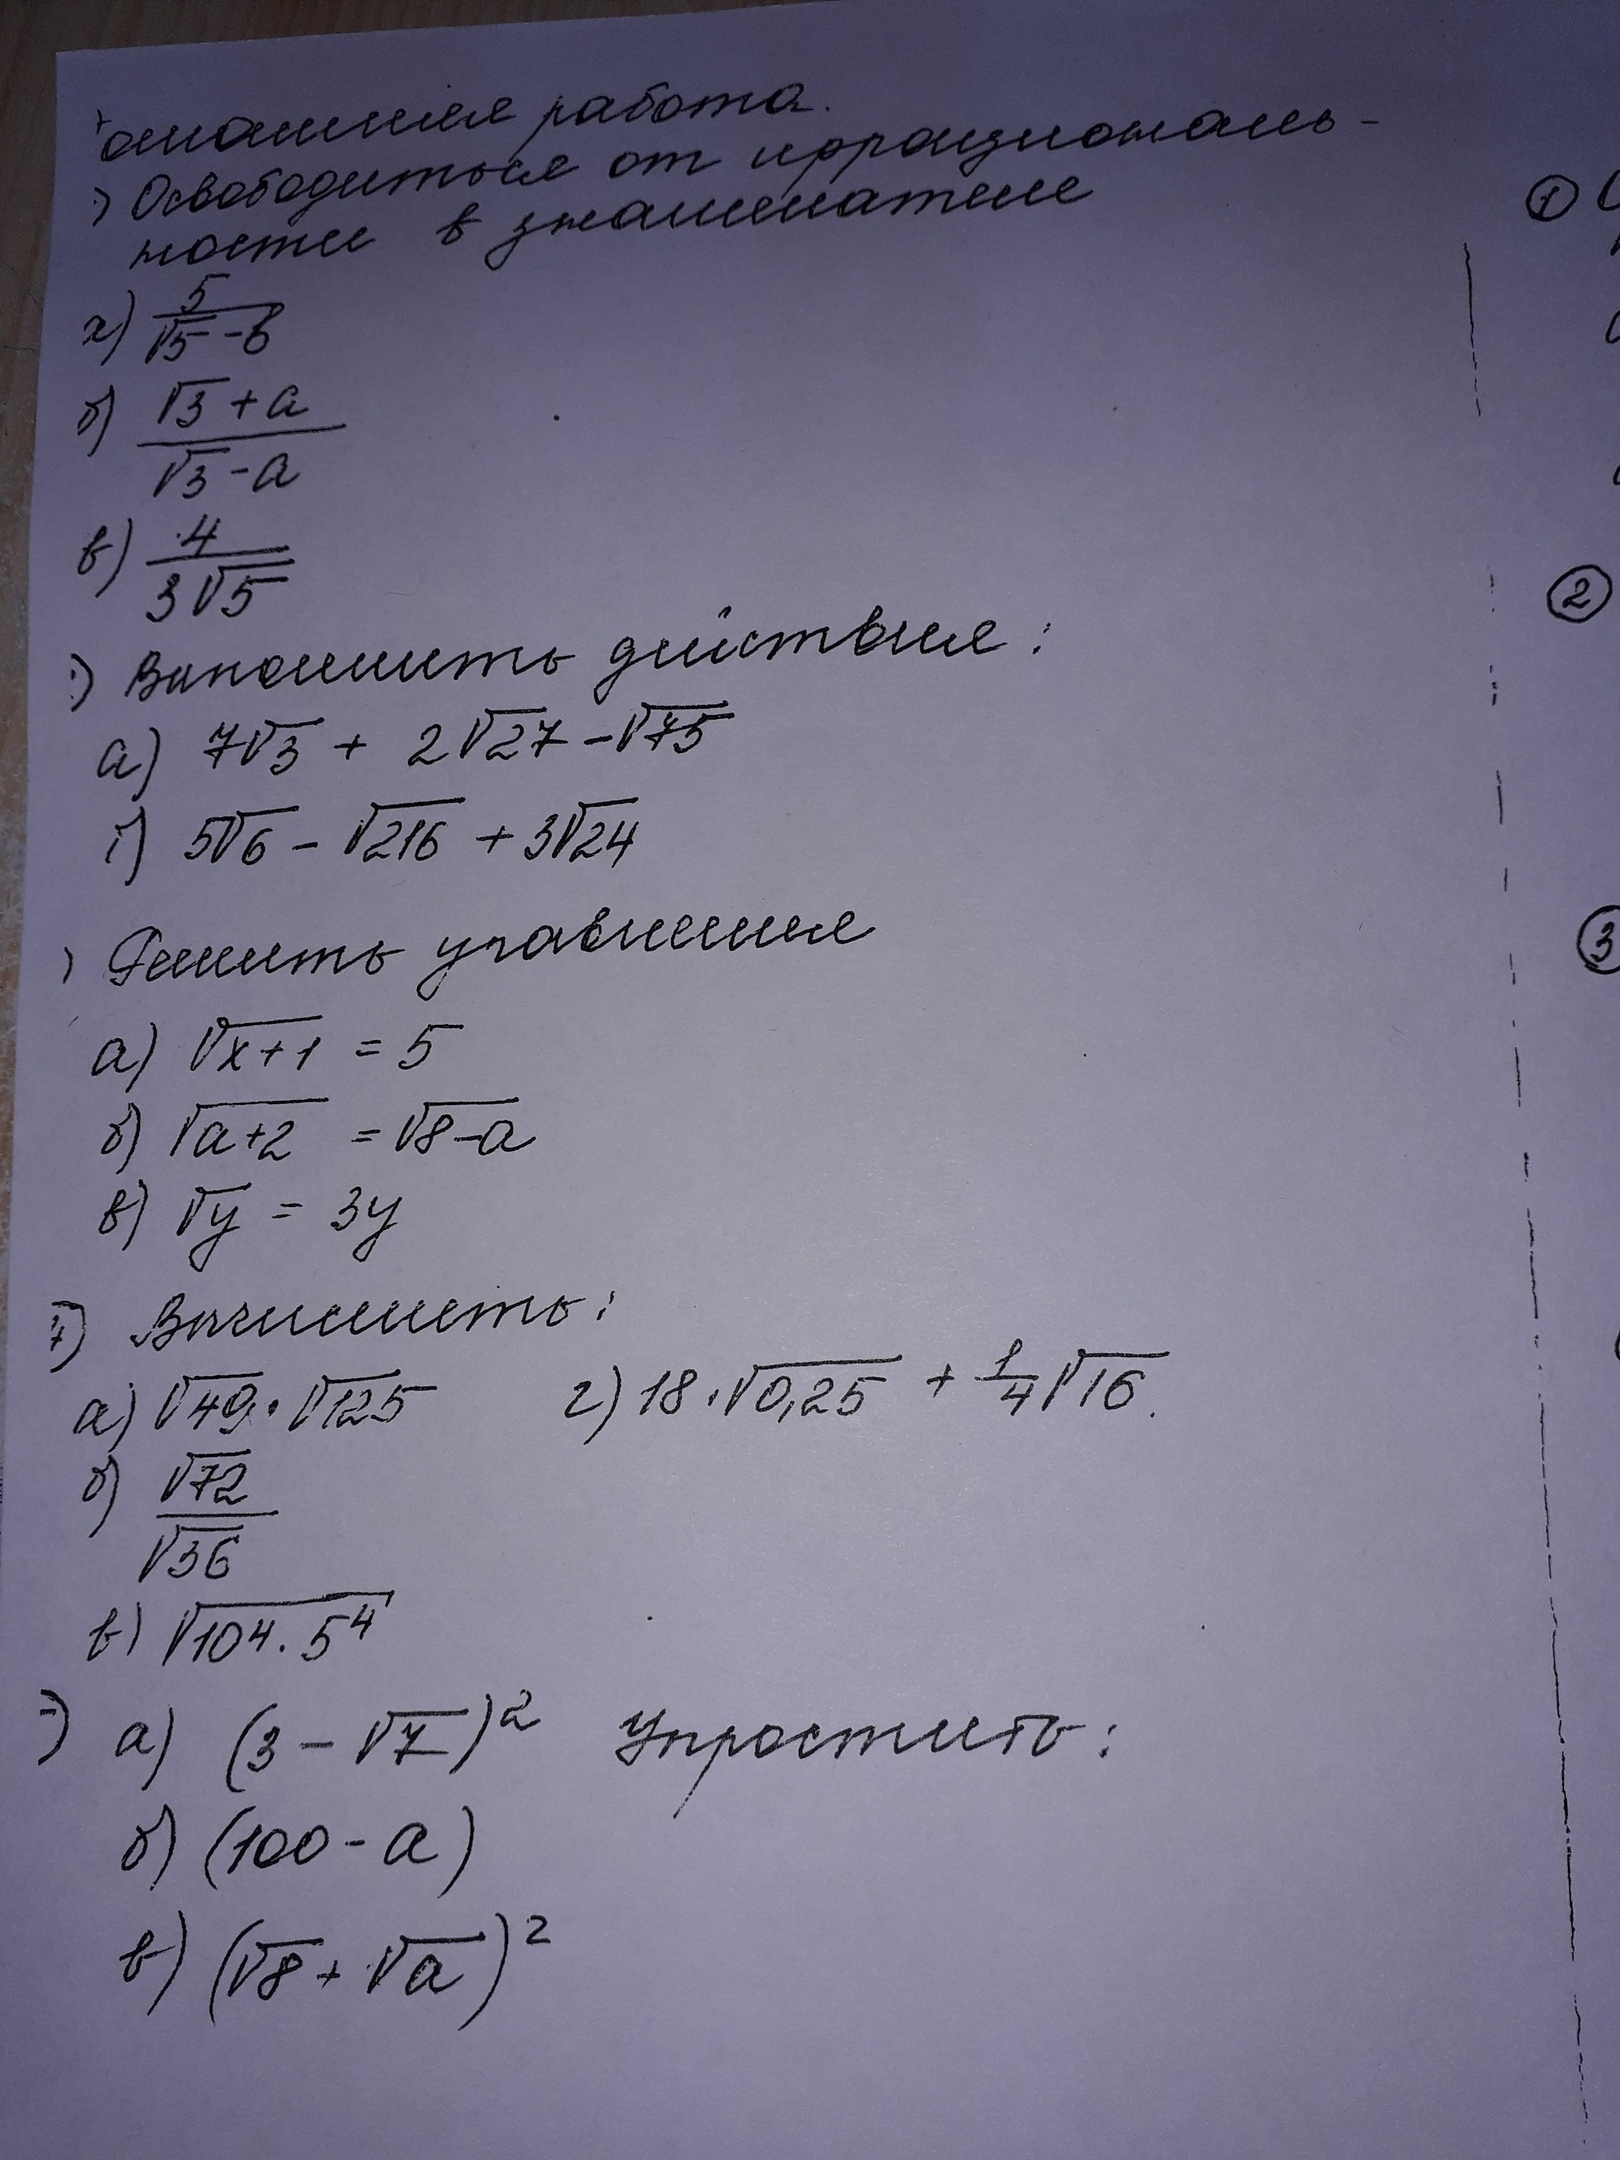 омашняя работа.
) Освободиться от иррациональ-
ности в знаменателе
а) 5/(√5 - в)
б) (√3 + а)/(√3 - а)
в) 4/(3√5)
) Выполнить действия:
а) 7√3 + 2√27 - √75
б) 5√6 - √216 + 3√24
) Решить уравнения
а) √(x+1) = 5
б) √(а+2) = √(8-а)
в) √y = 3y
4) Вычислить:
а) √49 · √125 г) 18 · √0,25 + 1/4 √16.
б) √72/√36
в) √(104 · 5⁴)
) а) (3 - √7)² Упростить:
б) (100 - а)
в) (√8 + √а)²
1
2
3